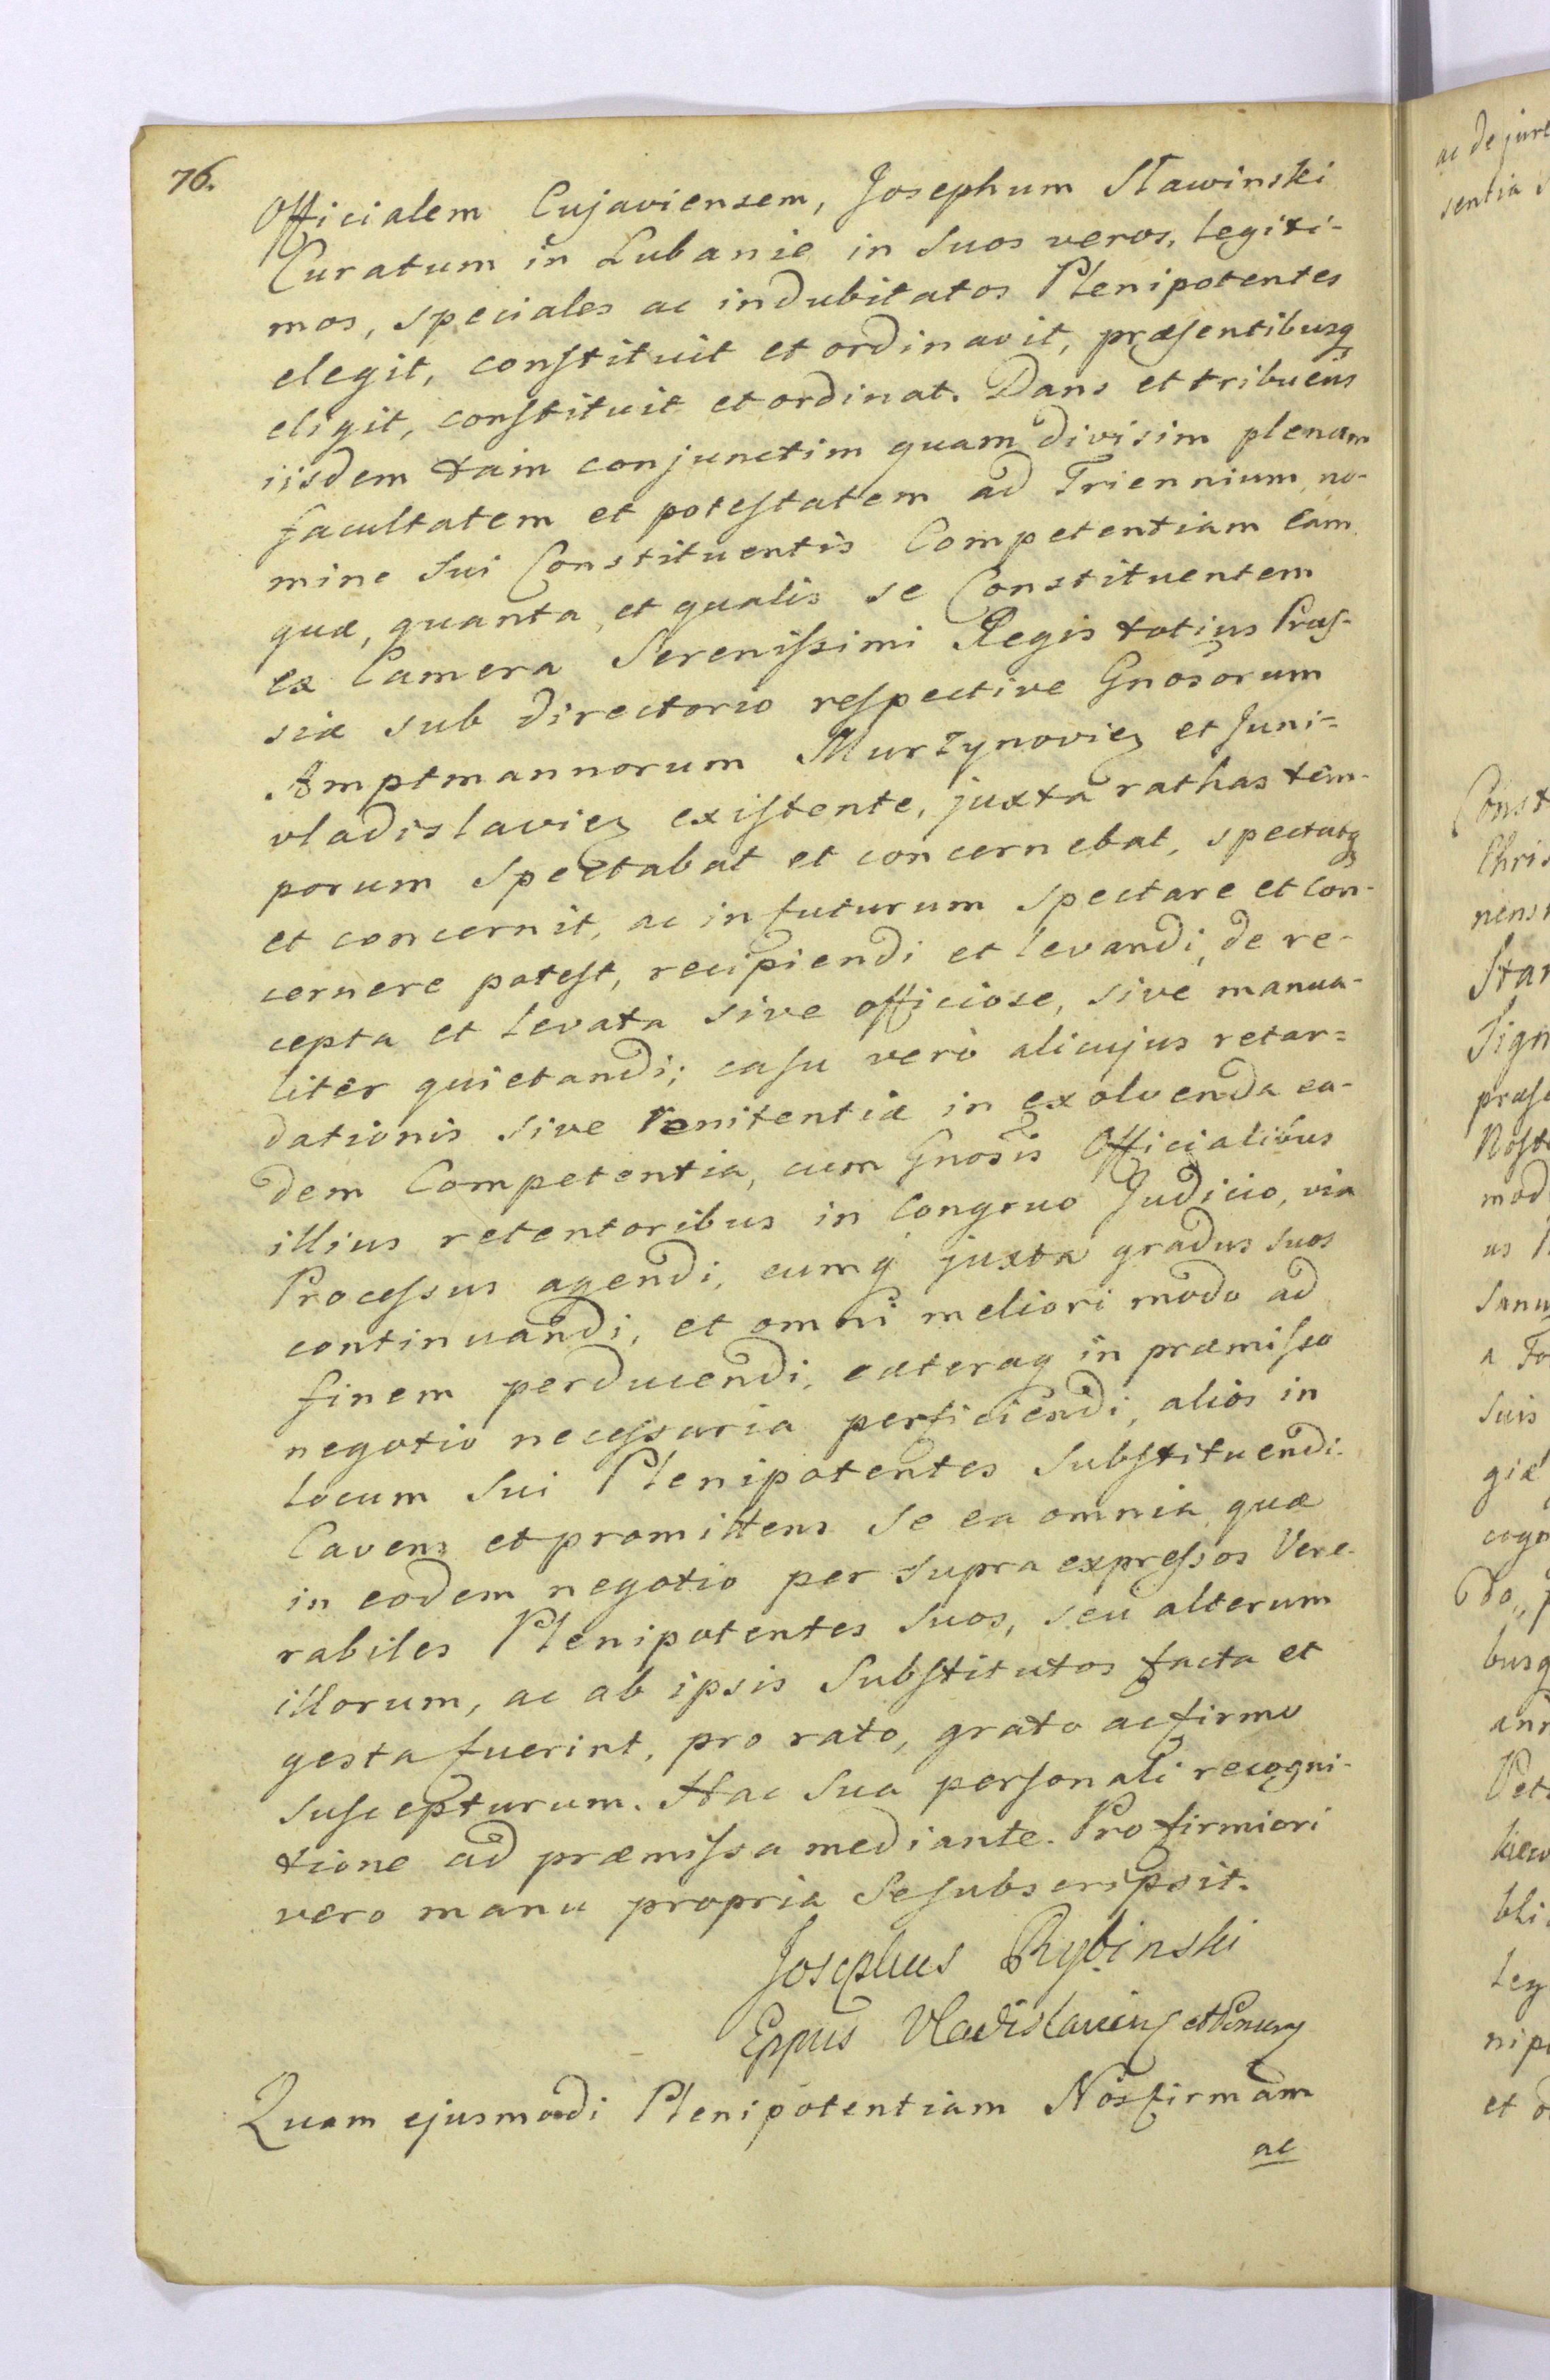 76.
Officialem Cujaviensem, Josephum Stawinski
Curatum in Lubanie in Suos veros, legiti-
mos, speciales ac indubitatos Plenipotentes
elegit, constituit et ordinavit, præsentibusq
eligit, constituit et ordinat. Dans et tribuens
iisdem tam conjunctim quam divisim plenam
facultatem et potestatem ad Triennium no-
mine Sui Constituentis Competentiam Eam
quæ, quanta, et qualis se Constituentem
ex Camera Serenissimi Regis totius Prus-
siæ sub directorio respective Gnosorum
Amptmannorum Murzynoviez et Juni=
vladislaviez existente, juxta rathas tem-
porum Spectabat et concernebat, spectatq
et concernit, ac in futurum spectare et Con-
cernere potest, recipiendi et levandi, de re-
cepta et levata sive officiose, sive manua-
liter quietandi; casu vero alicujus retar=
dationis sive renitentiæ in exolvenda ea-
dem Competentia, cum Gnosis Officialibus
illius retentoribus in Congruo Judicio, via
Processus agendi, eumq juxta gradus suos
continuandi, et omni meliori modo ad
finem perducendi, cæteraq in præmisso
negotio necessaria perficiendi, alios in
locum Sui Plenipotentes Substituendi.
Cavens et promittens Se ea omnia quæ
in eodem negotio per Supra expressos Vene-
rabiles Plenipotentes Suos, seu alterum
illorum, ac ab ipsis Substitutos facta et
gesta fuerint, pro rato, grato ac firmo
suscepturum. Hac Sua personali recogni-
tione ad præmissa mediante. Pro firmiori
vero manu propria Se subscripsit.
Josephus Rybinski
Eppus Vladislavien et
Quam ejusmodi Plenipotentiam Nos firmam
ac
ac de jure
sentia
Const
Chris
nens
Star
Sign
præs
Nost
mod
us
Sanu
a Fo
suis
giæ
cogn
do,
busq
ann
Pet
kiew
bli
leg
nip
et